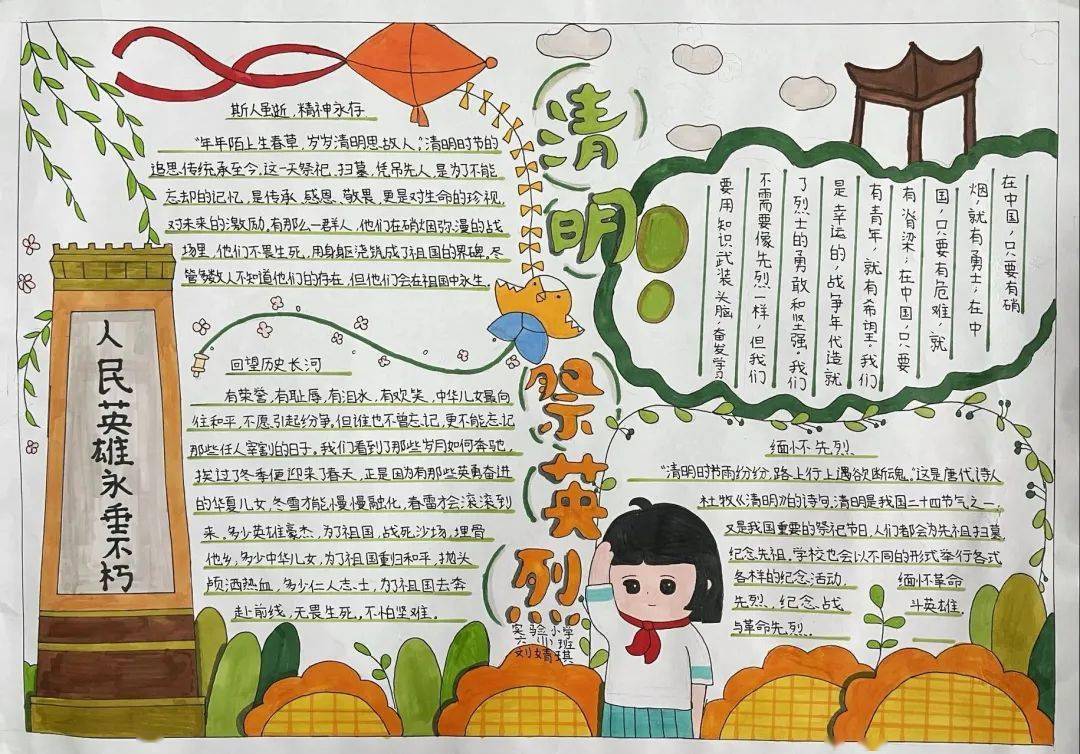 斯人虽逝，精神永存
“年年陌上生春草，岁岁清明思故人，”清明时节的
追思，传统承至今，这一天祭祀、扫墓，凭吊先人，是为不能
忘却的记忆，是传承、感恩、敬畏，更是对生命的珍视，
对未来的激励，有那么一群人，他们在硝烟弥漫的战
场里，他们不畏生死，用身躯浇筑成了祖国的界碑。尽
管多数人不知道他们的存在，但他们会在祖国中永生。
回望历史长河
有荣誉，有耻辱，有泪水，有欢笑，中华儿女最向
往和平，不愿引起纷争，但谁也不曾忘记，更不能忘记
那些任人宰割的日子。我们看到了那些岁月如何奔驰，
挨过了冬季便迎来了春天，正是因为有那些英勇奋进
的华夏儿女，冬雪才能慢慢融化，春雷才会滚滚到
来，多少英雄豪杰，为了祖国，战死沙场，埋骨
他乡，多少中华儿女，为了祖国重归和平，抛头
颅洒热血，多少仁人志士，为了祖国去奔
赴前线，无畏生死，不怕坚难。
人民英雄永垂不朽
清明
祭英烈
实验小学
刘婧琪
在中国，只要有硝
烟，就有勇士；在中
国，只要有危难，就
有脊梁；在中国，只要
有青年，就有希望。我们
是幸运的，战争年代造就
了烈士的勇敢和坚强。我们
不需要像先烈一样，但我们
要用知识武装头脑，奋发学习
缅怀先烈
“清明时节雨纷纷，路上行上遇欲断魂。”这是唐代诗人
杜牧《清明》的诗句，清明是我国二十四节气之一，
又是我国重要的祭祀节日，人们都会为先祖扫墓，
纪念先祖，学校也会以不同的形式举行各式
各样的纪念活动， 缅怀革命
先烈、纪念战 斗英雄，
与革命先烈